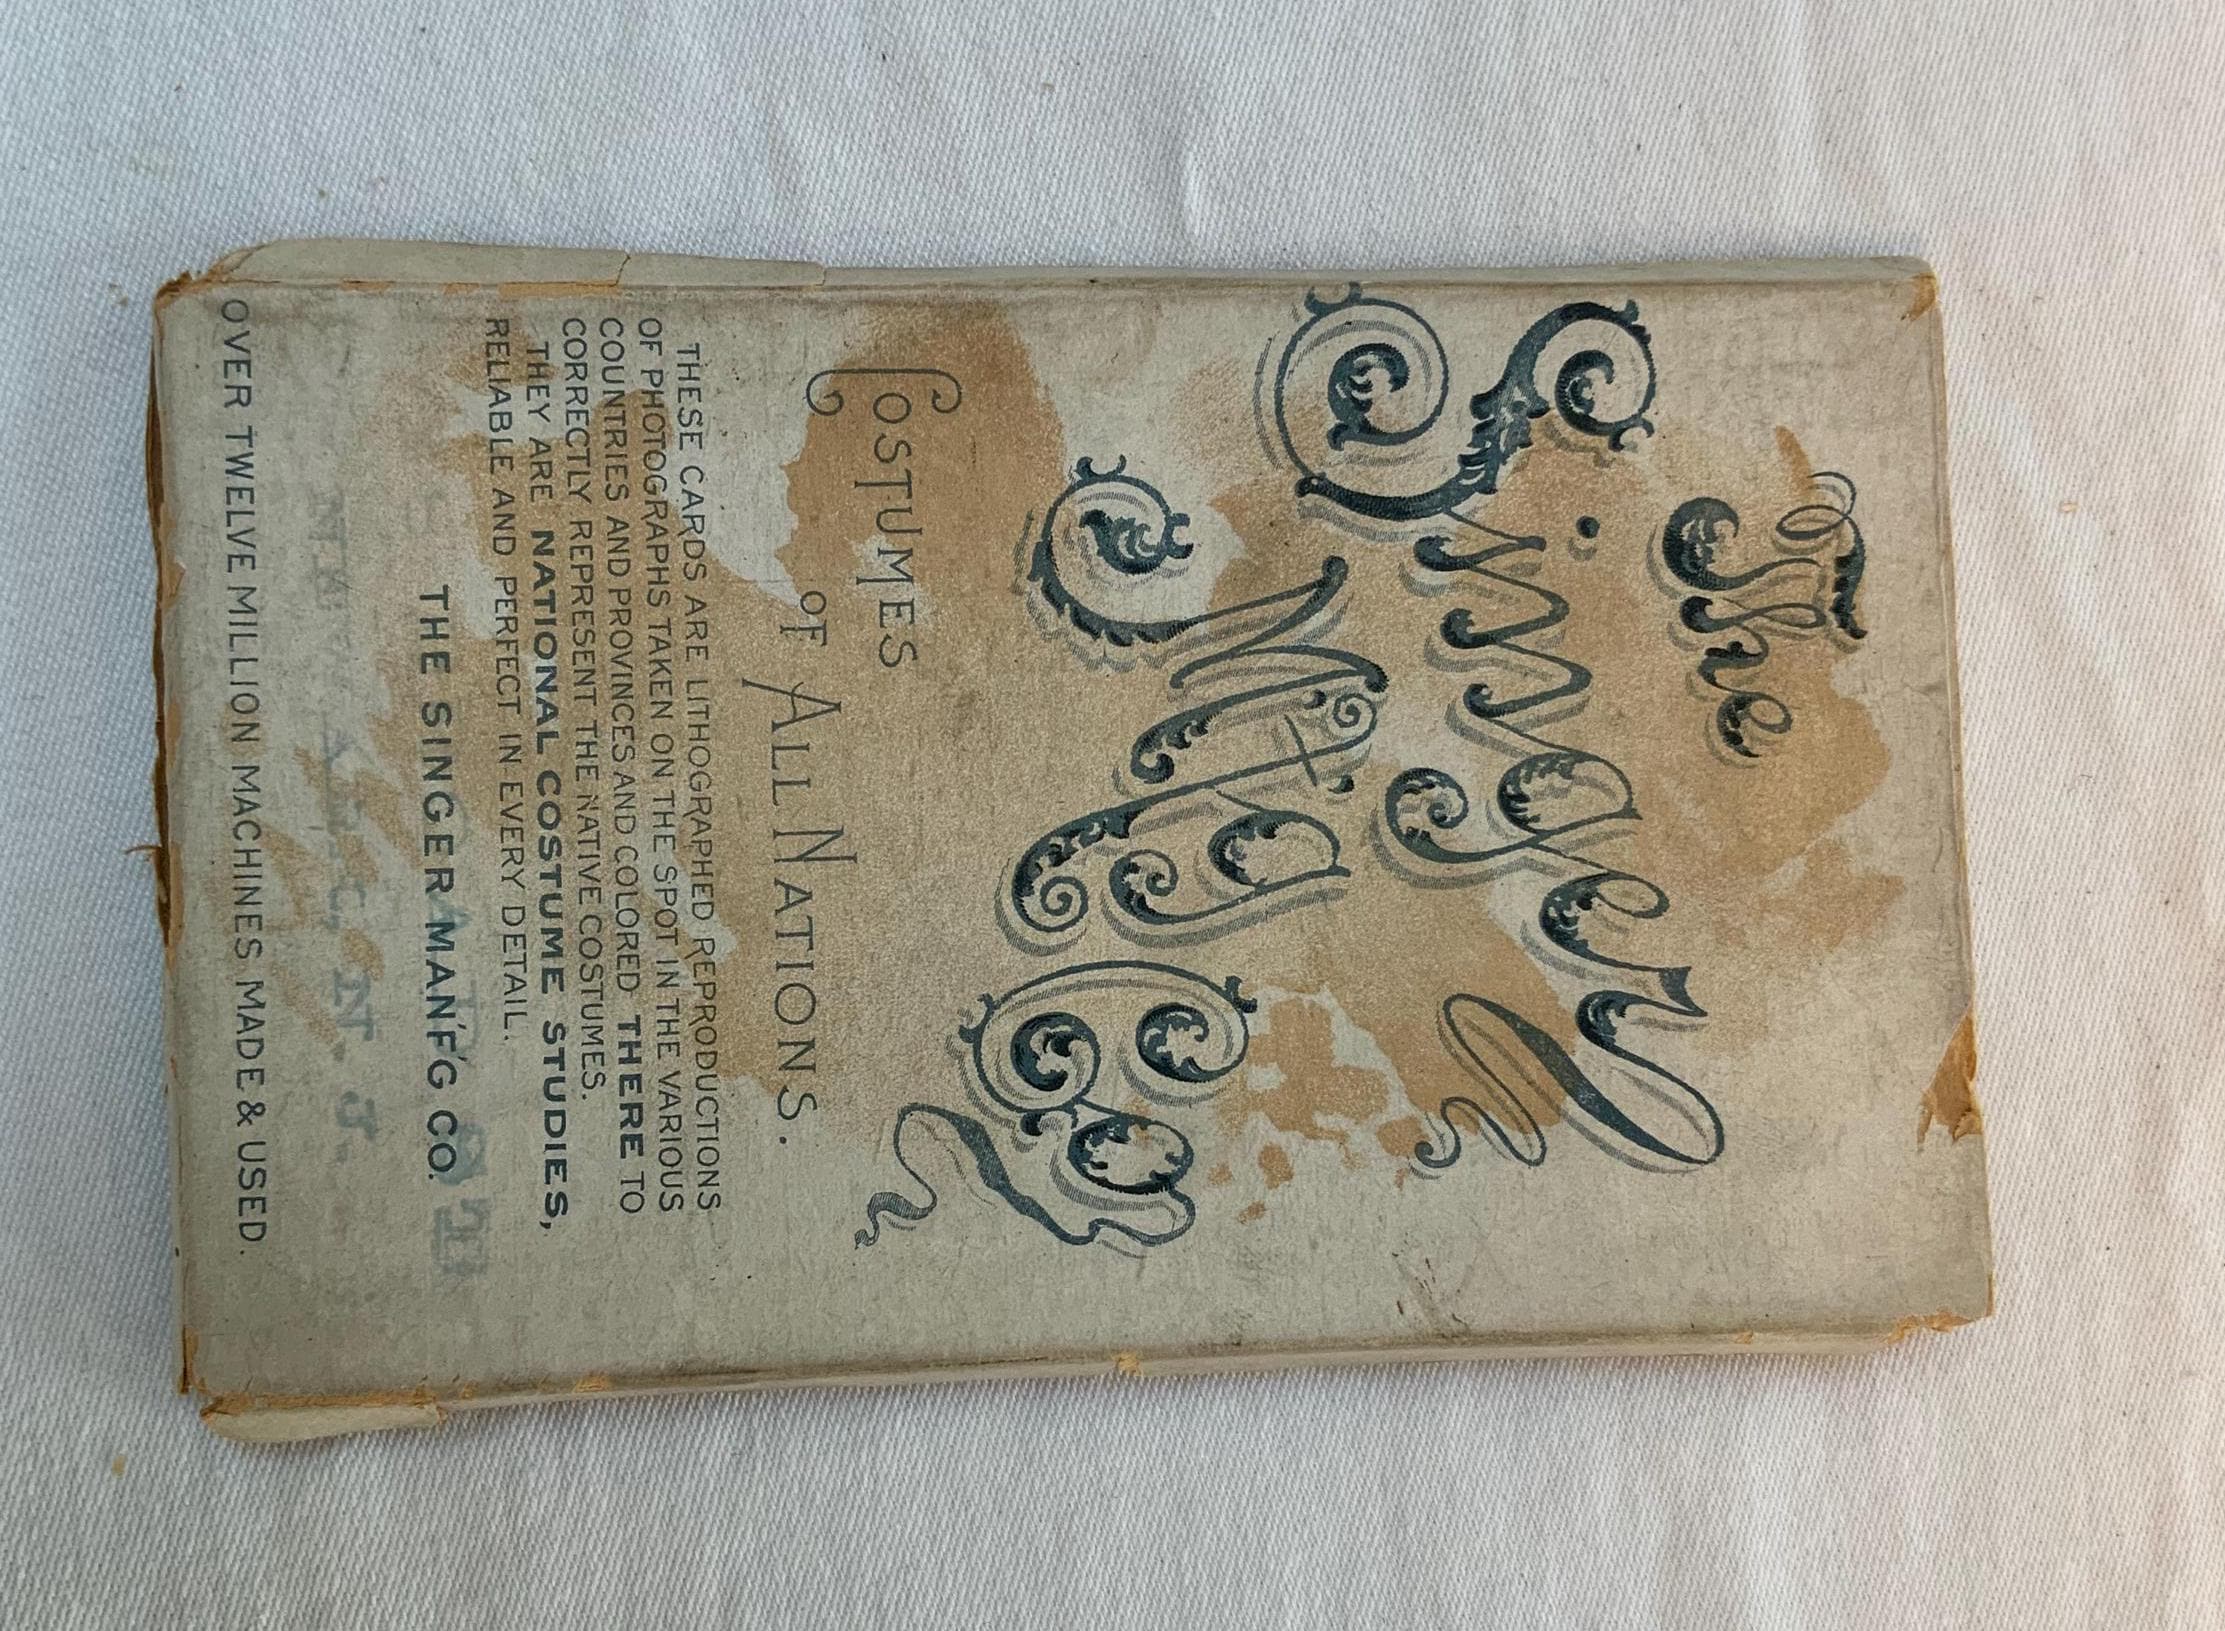 The
Singer
M'f'g
Co
COSTUMES
OF ALL NATIONS.
THESE CARDS ARE LITHOGRAPHED REPRODUCTIONS
OF PHOTOGRAPHS TAKEN ON THE SPOT IN THE VARIOUS
COUNTRIES AND PROVINCES AND COLORED THERE TO
CORRECTLY REPRESENT THE NATIVE COSTUMES.
THEY ARE NATIONAL COSTUME STUDIES,
RELIABLE AND PERFECT IN EVERY DETAIL.
THE SINGER MAN'F'G CO.
N. J.
OVER TWELVE MILLION MACHINES MADE & USED.